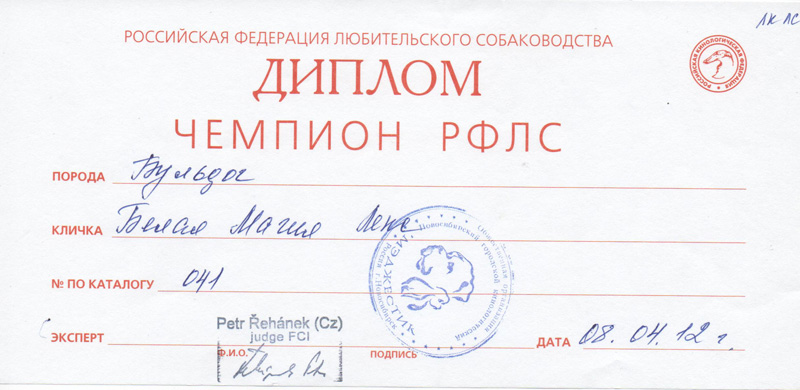 ЛК ЛС
РОССИЙСКАЯ ФЕДЕРАЦИЯ ЛЮБИТЕЛЬСКОГО СОБАКОВОДСТВА
РОССИЙСКАЯ КИНОЛОГИЧЕСКАЯ ФЕДЕРАЦИЯ
ДИПЛОМ
ЧЕМПИОН РФЛС
ПОРОДА Бульдог
КЛИЧКА Белая Магия Лекс
№ ПО КАТАЛОГУ 041
МЭДЖЕСТИК
Новосибирский городской кинологический
Общественная организация
Россия г. Новосибирск
Petr Řehánek (Cz)
judge FCI
ЭКСПЕРТ Ф.И.О. ПОДПИСЬ ДАТА 08.04.12 г.